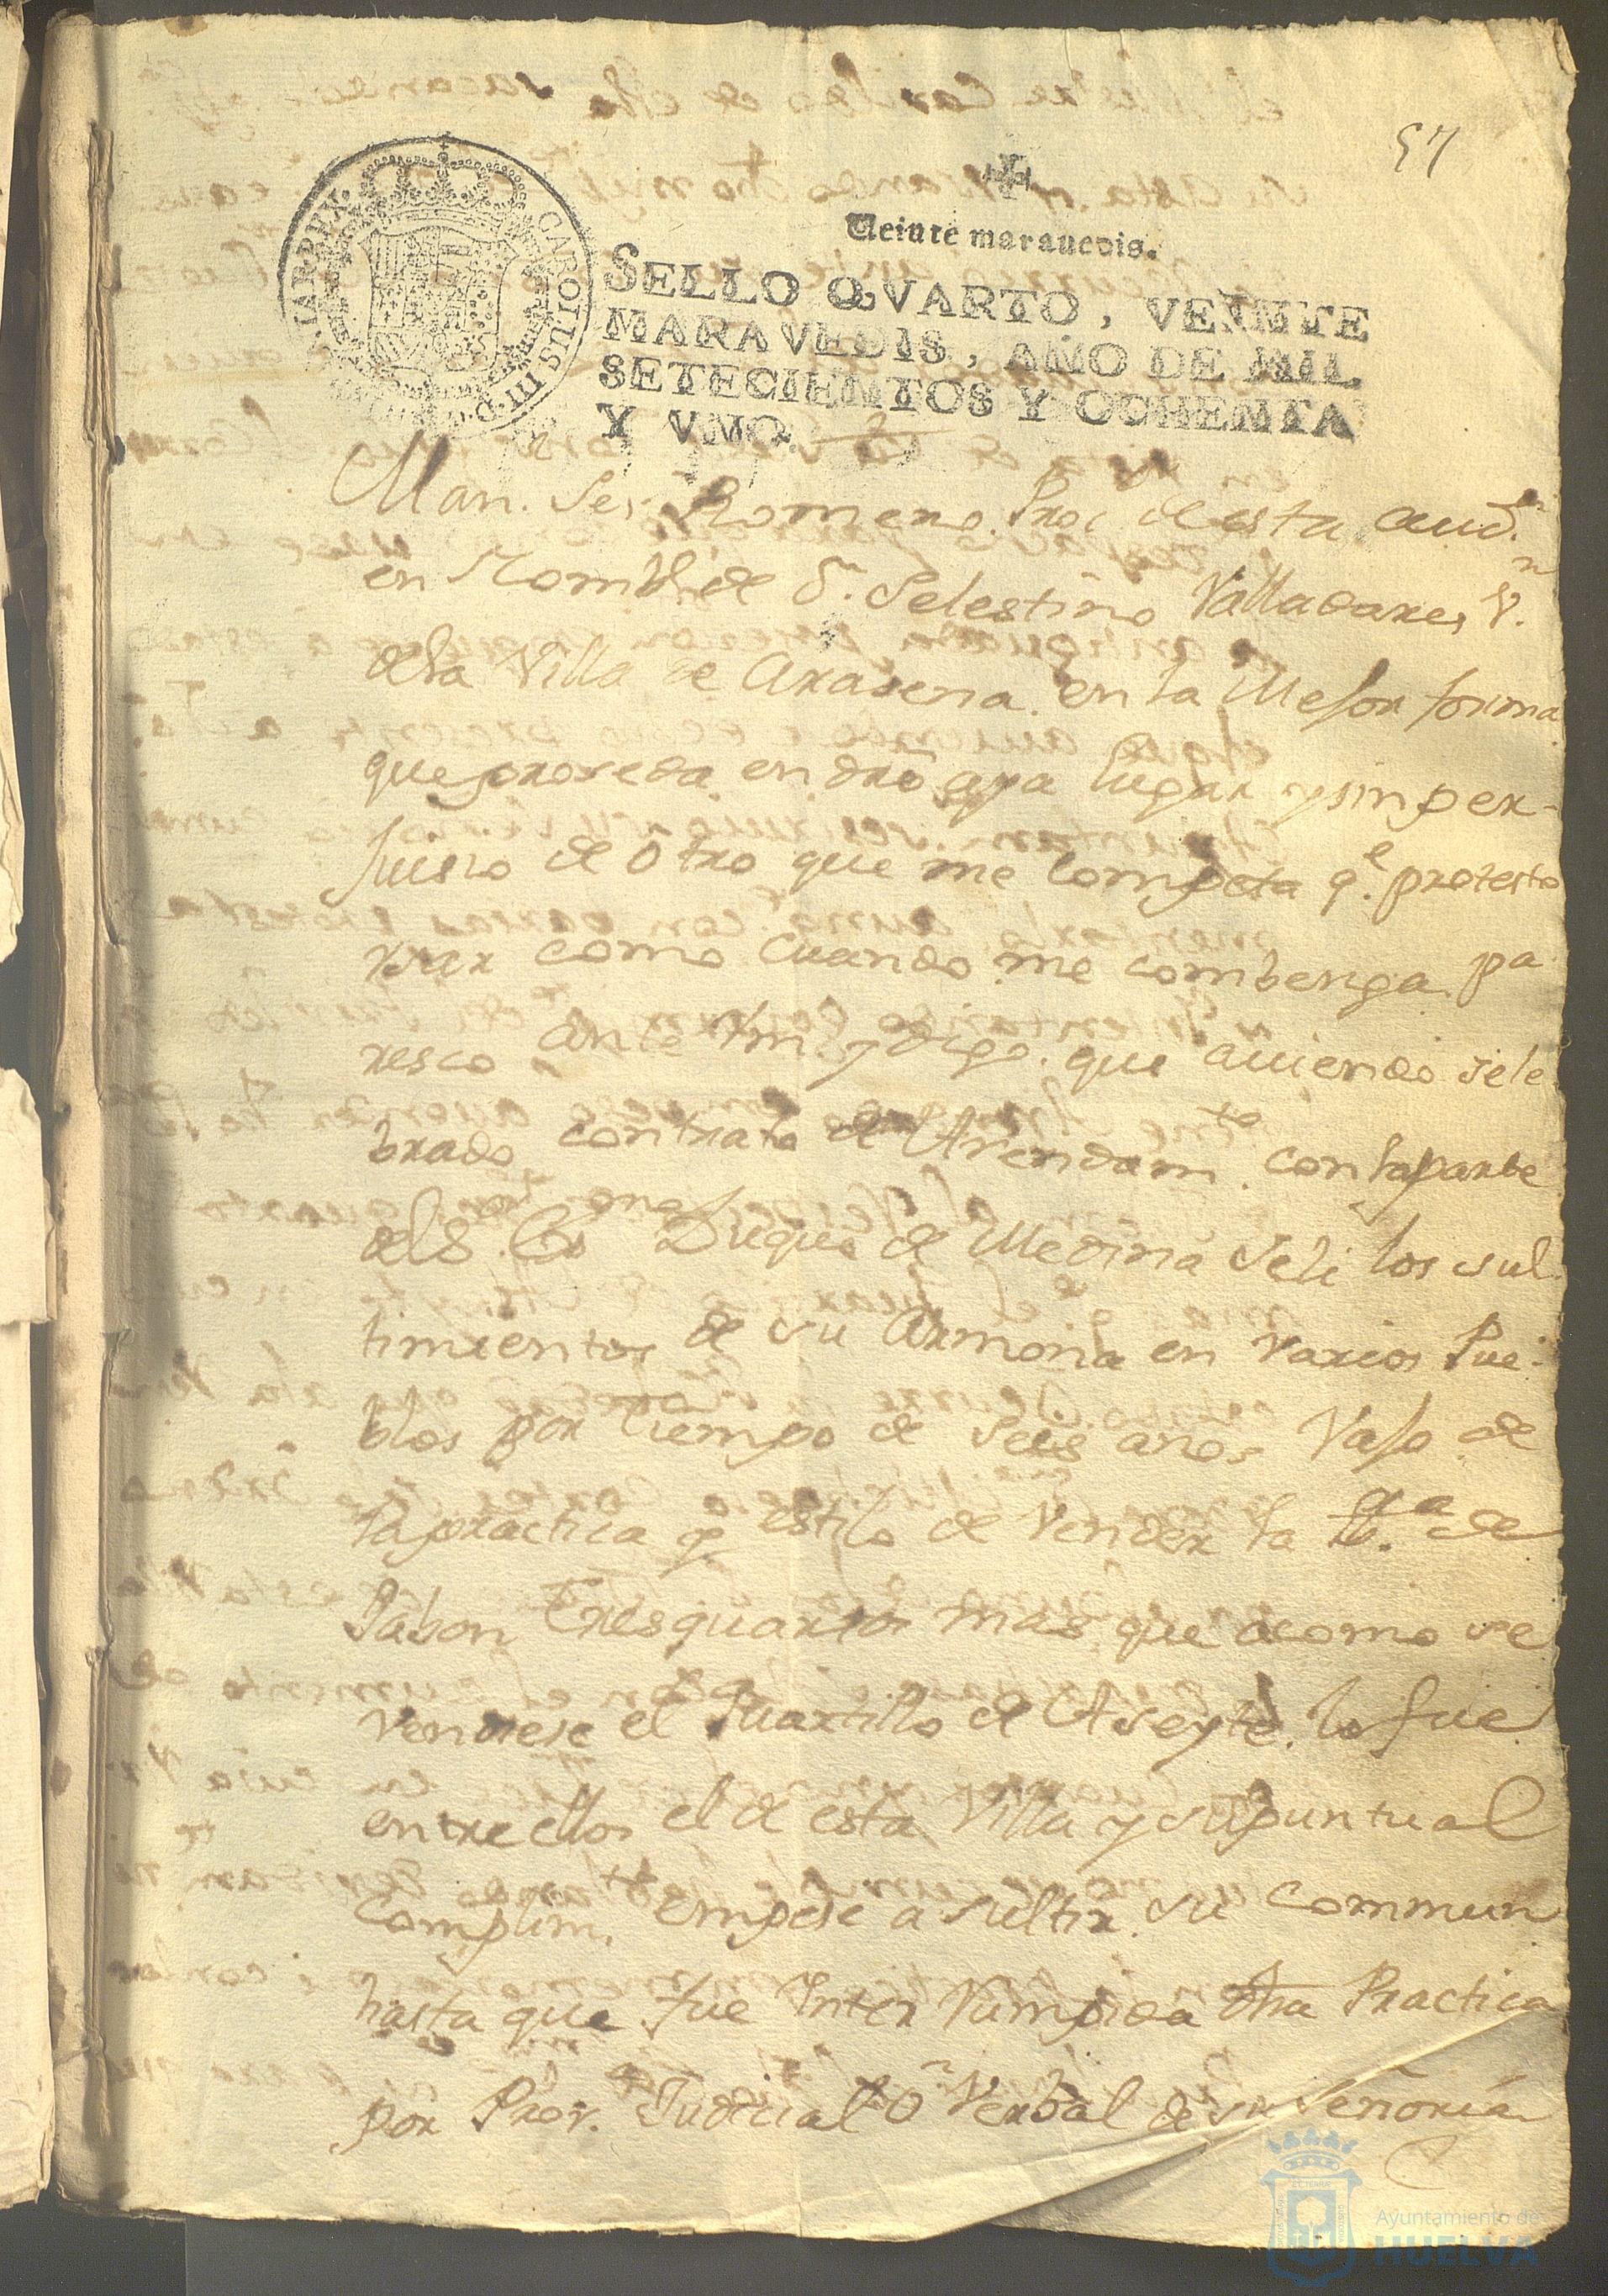 57
Veinte maravedis.
SELLO QVARTO, VEINTE
MARAVEDIS, AÑO DE MIL
SETECIENTOS Y OCHENTA
Y VNO.
CAROLUS III D
Man. Ser. Romero Proc. de esta aud.ª
en Nombre de Dn. Selestino Valladares V.n
dela Villa de Arasena en la Mejor forma
que proseda en dro aya lugar y sin per-
juisio de otro que me competa q.e protesto
como cuando me combenga pa
resco ante Vm y digo que auiendo sele
brado contrato de Arrendam.to con la parte
del S. Duque de Medina Seli los sul
timientos de su Armona en varios Pue-
blos por tiempo de seis años Vajo de
la practica y estilo de vender la de
Jabon tres quartos mas que acomo se
vendiese el quartillo de Aseyte lo fue
entre ellos el de esta Villa y su puntual
complim.to empese a sultir su commun
hasta que fue Inter Rumpida dha Practica
por Prov. Judicial O Verbal de su Señoria
Ayuntamiento de
HUELVA